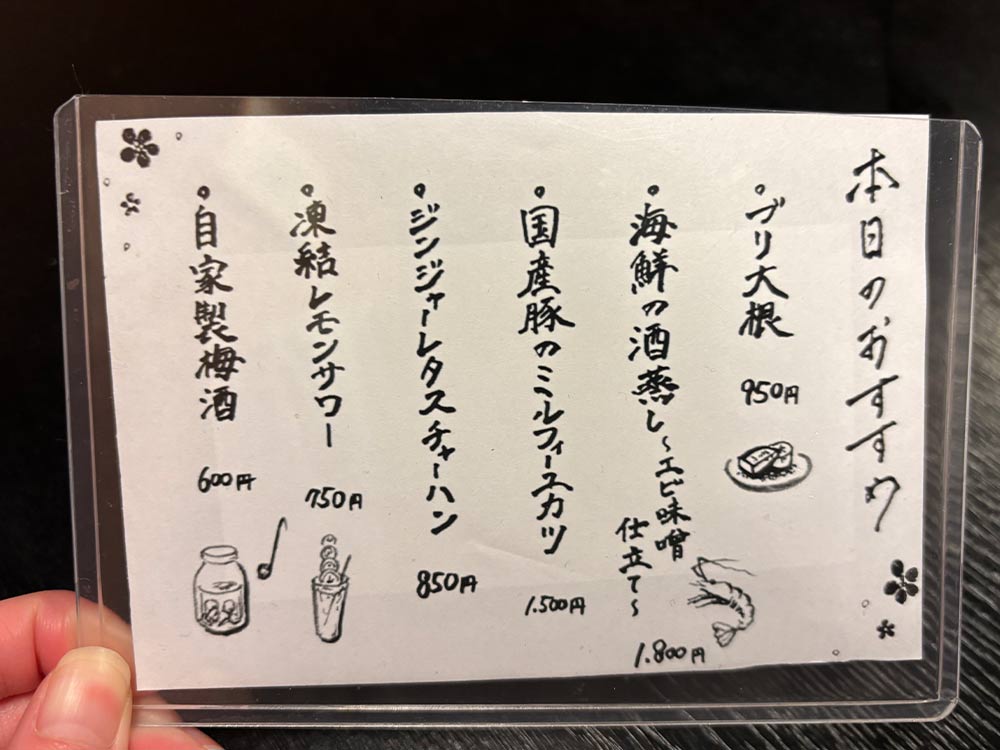 本日のおすすめ
・ブリ大根
950円
・海鮮の酒蒸し～エビ味噌
仕立て～
1.800円
・国産豚のミルフィーユカツ
1.500円
・ジンジャーレタスチャーハン
850円
・凍結レモンサワー
750円
・自家製梅酒
600円